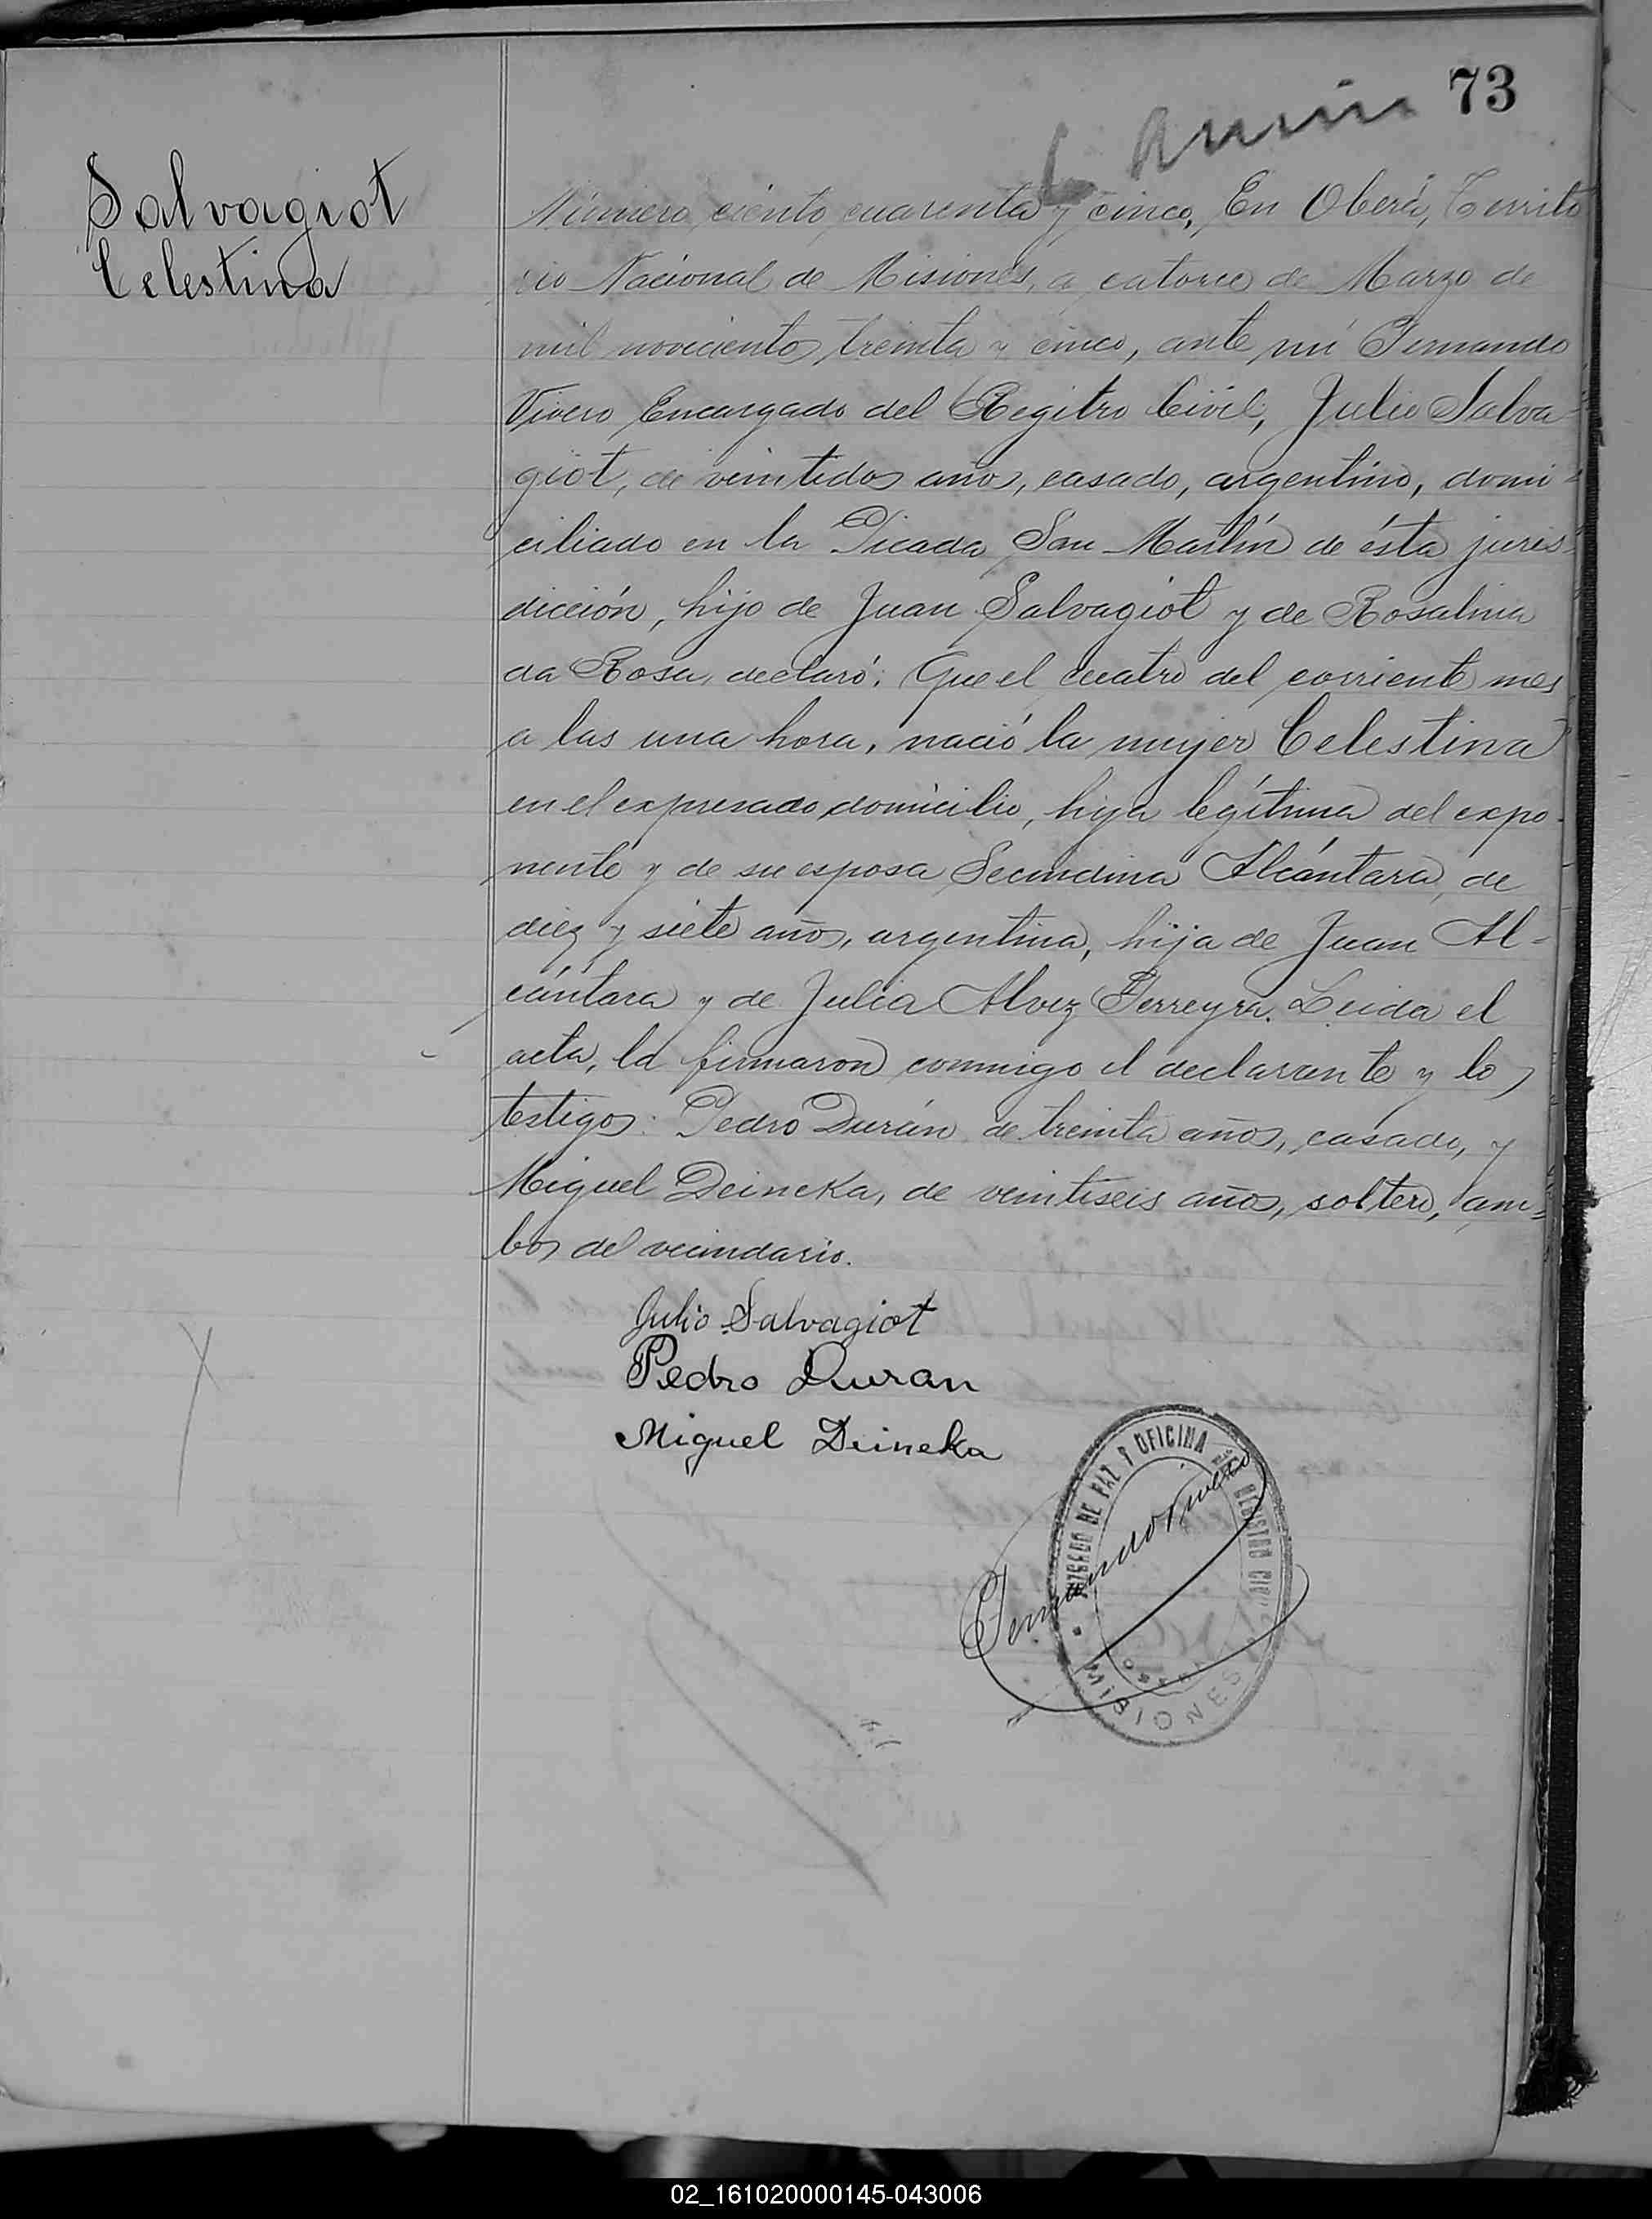 73
Salvagiot
Celestina
Número ciento cuarenta y cinco, En Oberá, Territo
rio Nacional de Misiones, a catorce de Marzo de
mil novecientos treinta y cinco, ante mí Fernando
Vivero Encargado del Regitro Civil, Julio Salva
giot, de veintidos años, casado, argentino, domi=
ciliado en la Picada San Martín de ésta juris=
dicción, hijo de Juan Salvagiot y de Rosalina
da Rosa, declaró: Que el cuatro del corriente mes
a las una hora, nació la mujer Celestina
en el expresado domicilio, hija legítima del expo-
nente y de su esposa Secundina Alcántara, de
diez y siete años, argentina, hija de Juan Al=
cántara y de Julia Alvez Ferreyra. Leida el
acta, la firmaron conmigo el declarante y los
testigos: Pedro Durán de treinta años, casado, y
Miguel Deineka, de veintiseis años, soltero, am=
bos del vecindario.
Julio Salvagiot
Pedro Duran
Miguel Deineka
Fernando Vivero
JUZGADO DE PAZ Y OFICINA REGISTRO CIVIL
MISIONES
02_161020000145-043006